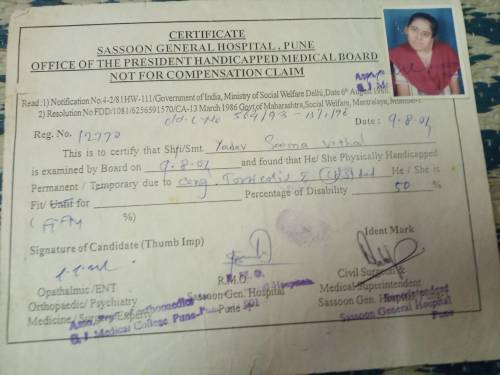 CERTIFICATE
SASSOON GENERAL HOSPITAL, PUNE
OFFICE OF THE PRESIDENT HANDICAPPED MEDICAL BOARD
NOT FOR COMPENSATION CLAIM
Read :1) Notification No.4-2/81HW-111/Government of India, Ministry of Social Welfare Delhi, Date 6th August 1986.
2) Resolution No FDD/1081/6256591570/CA-13 March 1986 Govt of Maharashtra, Social Welfare, Mantralaya,
Reg. No. 12770 Date : 9.8.01
This is to certify that Shri/Smt. Yadav Seema Vithal
is examined by Board on 9.8.01 and found that He/ She Physically Handicapped
Permanent / Temporary due to Cong. Torticolis He / She is
Fit/ Unfit for Percentage of Disability 50 %
( %)
Signature of Candidate (Thumb Imp) Ident Mark
Opathalmic /ENT R.M.O. Civil Surgeon &
Orthopaedic/ Psychiatry Sassoon Gen. Hospital Medical Superintendent
Medicine / Surgery/Expert) Pune Sassoon Gen. Hospital, Pune
B. J. Medical College Pune Sassoon General Hospital
Pune